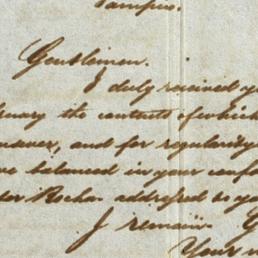 Tampico.
Gentlemen.
I duly received y
ruary the contents of which
answer, and for regularity
ve balanced in your conf
der Rocha addressed to yo
I remain
Your